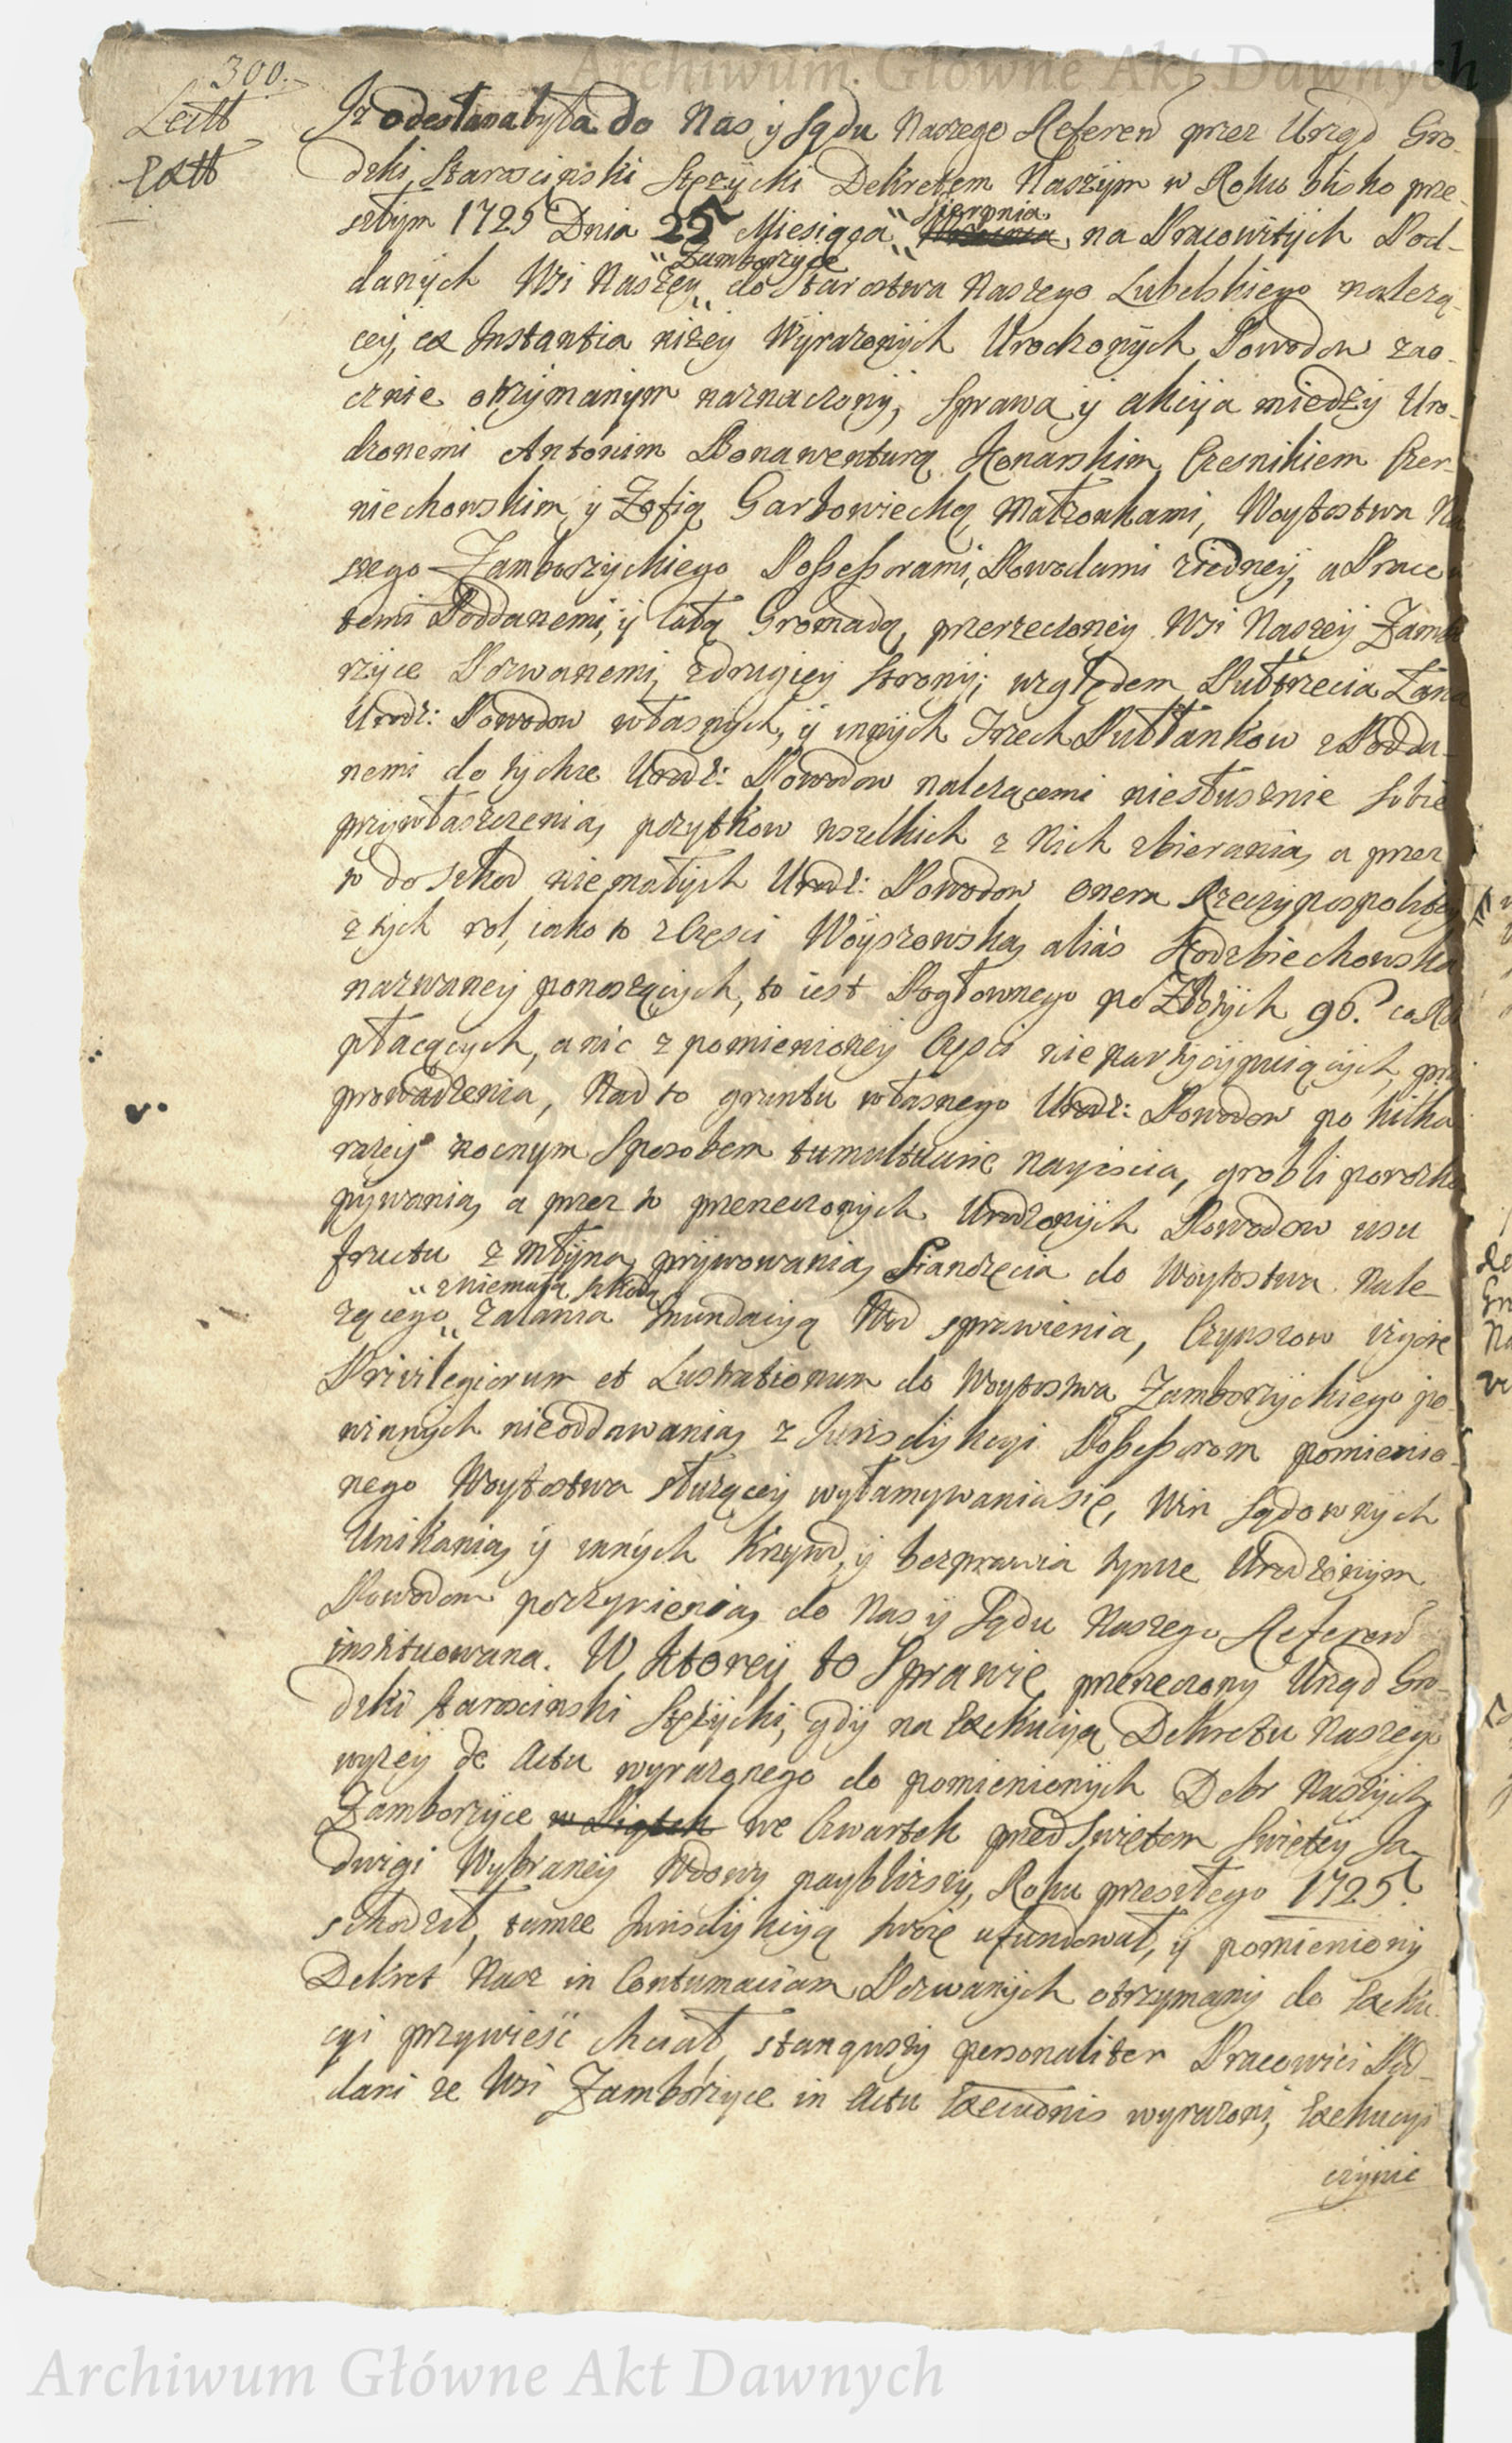 Archiwum Główne Akt Dawnych
300.
Lectt
Extt
Iz odesłana była do Nas y Sądu Naszego Referen przez Urząd Gro-
dzki, Starościński Stężycki Dekretem Naszym w Roku blisko prze-
szłym 1725 Dnia 25 Miesiąca Sierpnia, na Pracowitych Pod-
danych Wsi Naszey Zamborzyce do Starostwa Naszego Lubelskiego należą-
cey, ex Instantia niżey Wyrażonych Urodzonych Powodow zao-
cznie otrzymanym naznaczony, Sprawa y akcyia między Uro-
dzonemi Antonim Bonawenturą Konarskim, Cześnikiem Czer-
niechowskim, y Zofią Garbowiecką Małżonkami, Woytostwa Na
szego Zamborzyckiego Possessorami, Powodami ziedney, a Pracowi
temi Poddanemi, y całą Gromadą, przerzeczoney Wsi Naszey Zambo
rzyce Pozwanemi, zdrugiey Strony; względem Pułtrzecia Łana
Urodz: Powodow własnych, y innych Trzech Pułłankow z Podda-
nemi do tychze Urodz: Powodow należącemi niesłusznie Sobie
przywłaszczenia, pożytkow wszelkich z Nich zbierania, a przez
to do szkod niemałych Urodz: Powodow onera Rzeczypospolitey
z tych rol, iako to z Części Woyszowska, aliàs Kodzbiechowska
nazwaney ponoszących, to iest Pogłownego po Złotych 96. co Rok
płacących, a nic z pomienioney Części nie partycypuiących, przy
prowadzenia, Nad to gruntu własnego Urodz: Powodow po kilka
razy nocnym Sposobem tumultuarie nayscia, grobli porozko
pywania, a przez to przerzeczonych Urodzonych Powodow usu
fructu z Młyna, prywowania, Sianożęcia do Woytostwa Nale-
żącego, z niemałą szkodą zalania Inundacyą Wod sprawienia, Czynszow vigore
Privilegiorum et Lustrationum do Woytostwa Zamborzyckiego po-
winnych nieoddawania, z Jurisdykcyi Possessorom pomienio-
nego Woytostwa służącey wyłamywania się, Win Sądownych
Unikania, y innych Krzywd, y bezprawia tymże Urodzonym
Powodom poczynienia, do Nas y Sądu Naszego Referen
instituowana. W Ktorey to Sprawie, przerzeczony Urząd Gro-
dzki Starościnski Stężycki, gdy na Exekucyą Dekretu Naszego
wyżey de Actu wyrażonego do pomienionych Dobr Naszych
Zamborzyce w Piątek we Czwartek przed Swiętem Swiętey Ja-
dwigi Wybraney Wdowy naybliższy, Roku przeszłego 1725
zchodził, tamże Jurisdykcyą swoię ufundował, y pomieniony
Dekret Nasz in Contumaciam Pozwanych otrzymany do Exeku
cyi przywieść chciał, stanąwszy personaliter Pracowici Pod-
dani ze Wsi Zamborzyce in Actu Executionis wyrażoni, Exekucyi
czynić
Archiwum Główne Akt Dawnych